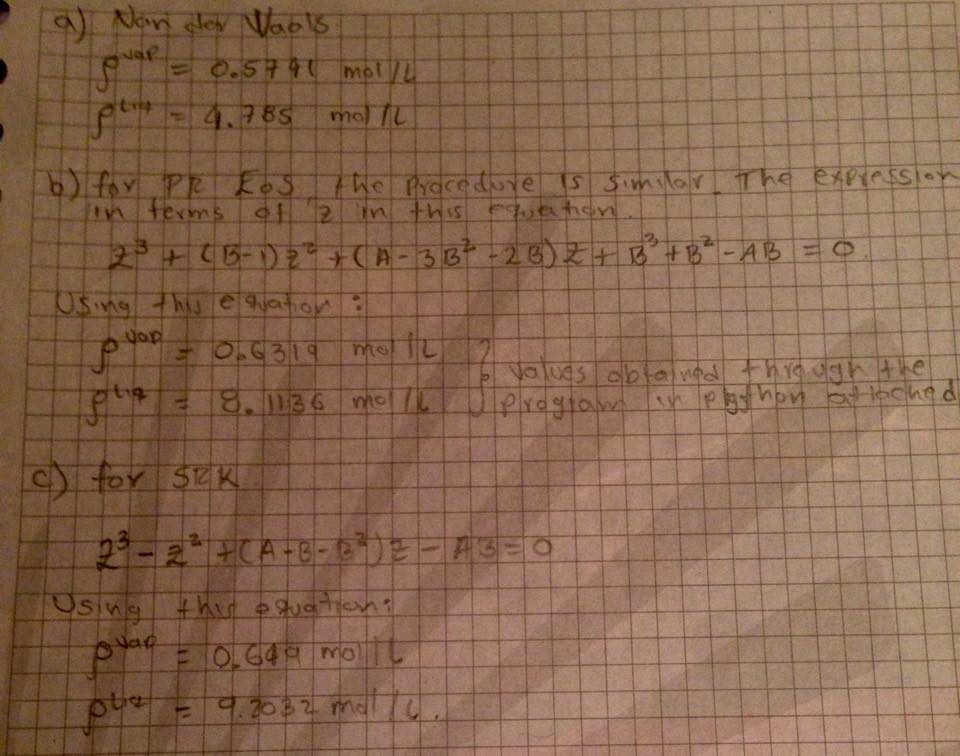 a) Van der Vaals
ρ^vap = 0.5741 mol/L
ρ^Liq = 4.785 mol/L
b) for PR EoS, the procedure is similar. The expression
in terms of z in this equation.
z³ + (B-1)z² + (A - 3B² - 2B)z + B³ + B² - AB = 0.
Using this equation:
ρ^vap = 0.6319 mol/L } values obtained through the
ρ^Liq = 8.1136 mol/L } program in python attached
c) for SRK
z³ - z² + (A - B - B²)z - AB = 0
Using this equation:
ρ^vap = 0.649 mol/L
ρ^Liq = 9.2032 mol/L.